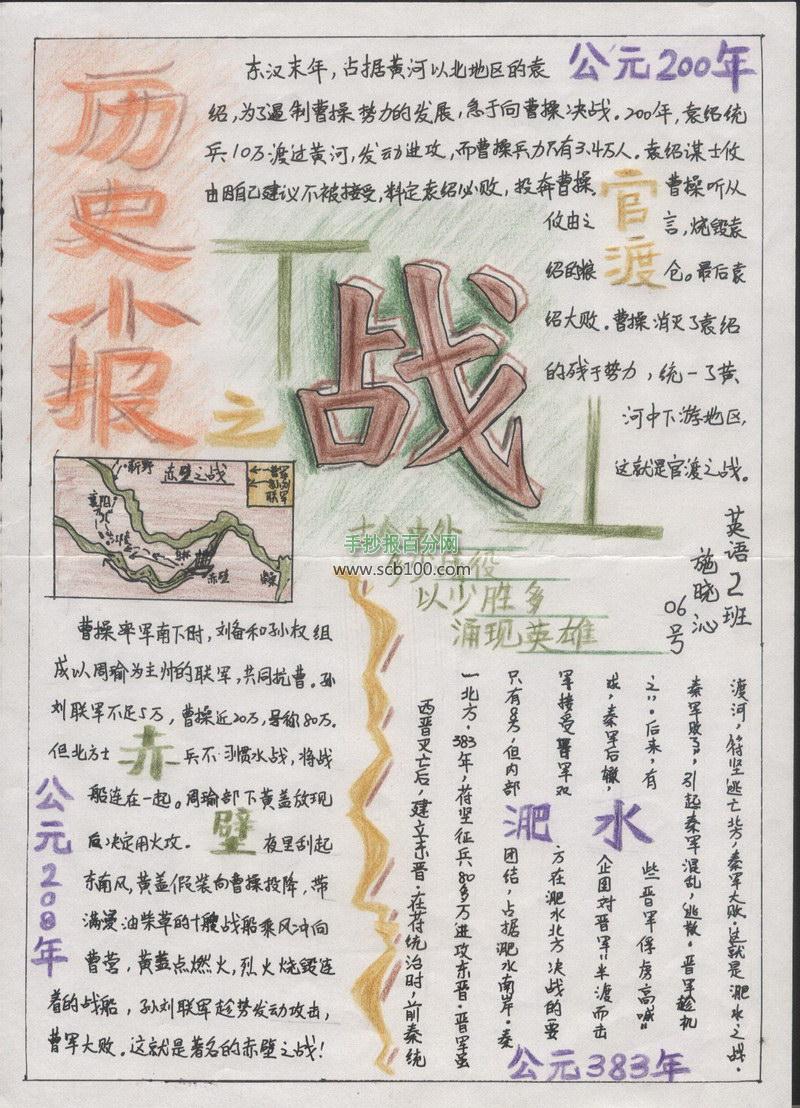 历史小报
之
战
公元200年
东汉末年，占据黄河以北地区的袁
绍，为了遏制曹操势力的发展，急于向曹操决战。200年，袁绍统
兵10万渡过黄河，发动进攻，而曹操兵力不有3.4万人。袁绍谋士攸
由因自己建议不被接受，料定袁绍必败，投奔曹操。曹操听从
攸由之言，烧毁袁
绍的粮仓。最后袁
绍大败。曹操消灭了袁绍
的残于势力，统一了黄
河中下游地区，
这就是官渡之战。
官渡
新野
赤壁之战
曹军
孙刘
联军
襄阳
赤壁
手抄报百分网
www.scb100.com
以少胜多
涌现英雄
英语2班
施晓沁
06号
曹操率军南下时，刘备和孙权组
成以周瑜为主帅的联军，共同抗曹。孙
刘联军不足5万，曹操近20万，号称80万。
但北方士兵不习惯水战，将战
船连在一起。周瑜部下黄盖放现
后决定用火攻。夜里刮起
东南风，黄盖假装向曹操投降，带
满浸油柴草的十艘战船乘风冲向
曹营，黄盖点燃火，烈火烧毁连
着的战船，孙刘联军趁势发动攻击，
曹军大败。这就是著名的赤壁之战！
赤壁
公元208年
西晋灭亡后，建立东晋。在苻统治时，前秦统
一北方。383年，苻坚征兵80多万进攻东晋。晋军虽
只有8万，但内部团结，占据淝水南岸。秦
军接受晋军双方在淝水北方决战的要
求，秦军后撤，企图对晋军"半渡而击
之"。后来，有些晋军俘虏高喊"
秦军败了"，引起秦军混乱，逃散。晋军趁机
渡河，苻坚逃亡北方，秦军大败。这就是淝水之战。
淝水
公元383年